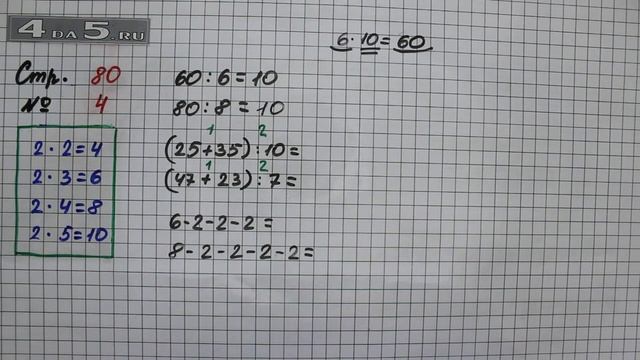 4 DA 5.RU
6 · 10 = 60
Стр. 80
№ 4
2 · 2 = 4
2 · 3 = 6
2 · 4 = 8
2 · 5 = 10
60 : 6 = 10
80 : 8 = 10
1 2
(25 + 35) : 10 =
1 2
(47 + 23) : 7 =
6 - 2 - 2 - 2 =
8 - 2 - 2 - 2 - 2 =